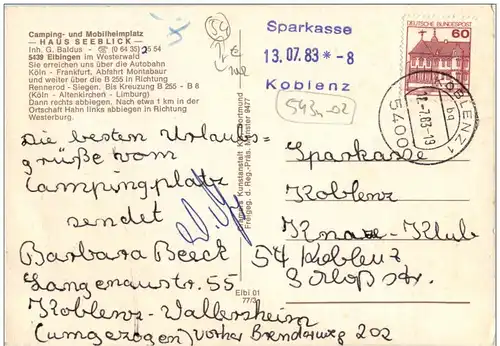 Camping- und Mobilheimplatz
— HAUS SEEBLICK —
Inh. G. Baldus - ☎ (0 64 35) 2554
5439 Elbingen im Westerwald
Sie erreichen uns über die Autobahn
Köln - Frankfurt, Abfahrt Montabaur
und weiter über die B 255 in Richtung
Rennerod - Siegen. Bis Kreuzung B 255 - B 8
(Köln - Altenkirchen - Limburg)
Dann rechts abbiegen. Nach etwa 1 km in der
Ortschaft Hahn links abbiegen in Richtung
Westerburg.
Die besten Urlaubs-
grüße vom
Campingplatz
sendet
Barbara Beeck
Langenaustr. 55
Koblenz-Wallersheim
(umgezogen) vorher Brenderweg 202
Freigeg. d. Reg.-Präs. Münster 9477
Elbi 01
77/3
54
Sparkasse
13.07.83 *-8
Koblenz
543n-02
DEUTSCHE BUNDESPOST
60
KOBLENZ 1
bq
12.-7.83-19
5400
Sparkasse
Koblenz
Knax-Klub
54 Koblenz
Schloßstr.